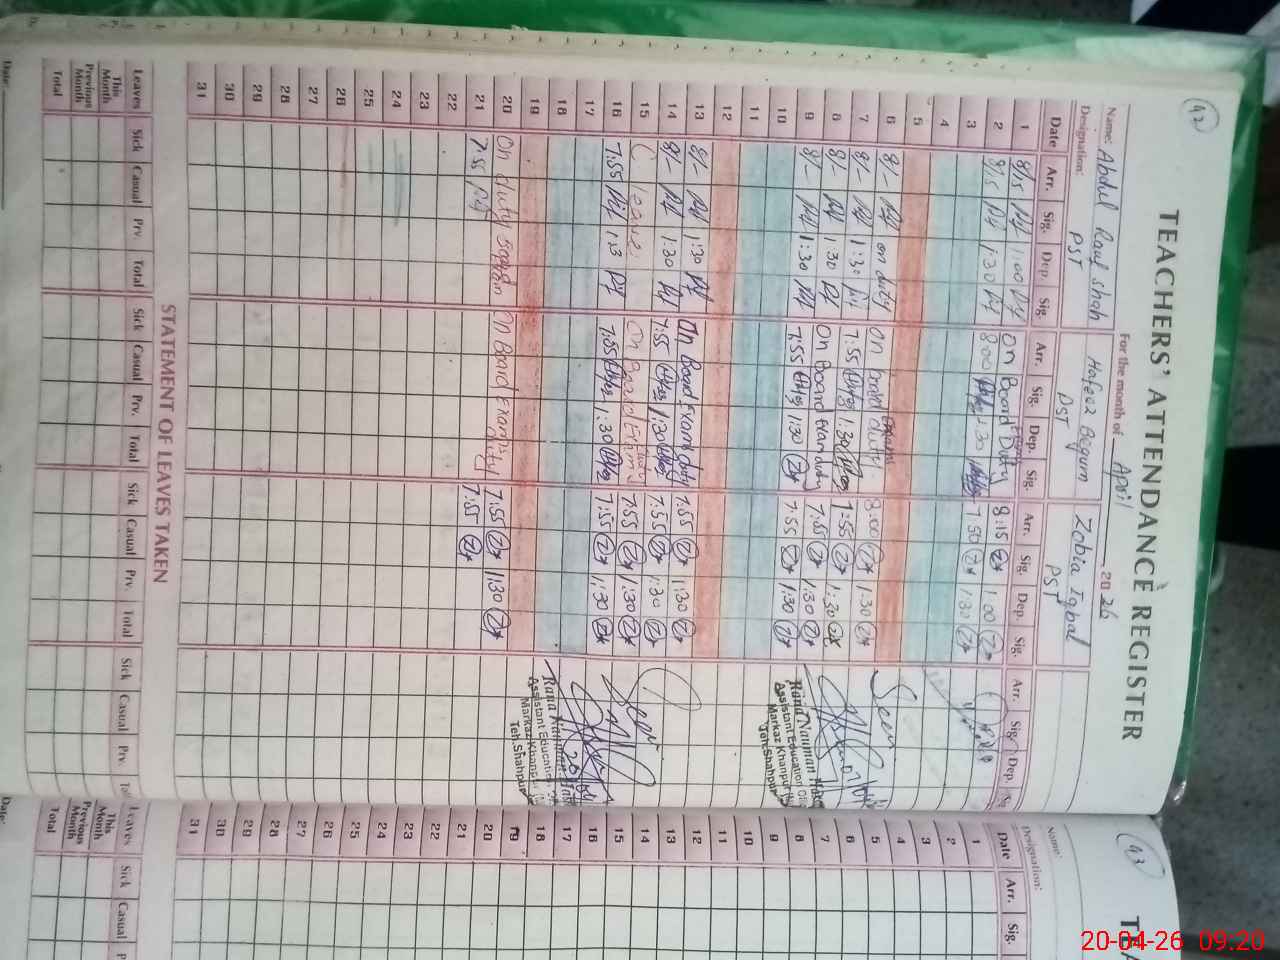 42
TEACHERS' ATTENDANCE REGISTER
For the month of April 2026
Name: Abdul Rauf Shah Hafeez Begum Zobia Iqbal
Designation: PST PST PST
Date Arr. Sig. Dep. Sig. Arr. Sig. Dep. Sig. Arr. Sig. Dep. Sig. Arr. Sig. Dep.
1 8/15 1:00 On Board Exam Duty 8:15 1:00
2 8/15 1:30 8:00 1:30 7:50 1:30
3
4
5
6 8/- on duty on board Exams duty 8:00 1:30
7 8/- 1:30 7:55 1:30 7:55 1:30
8 8/- 1:30 On Board Exam duty 7:55 1:30
9 8/- 1:30 7:55 1:30 7:55 1:30
10
11
12
13 8/- 1:30 On Board Exam duty 7:55 1:30
14 8/- 1:30 7:55 1:30 7:55 1:30
15 C. leave On Board Exam 7:55 1:30
16 7:55 1:3 7:55 1:30 7:55 1:30
17
18
19
20 On duty Board Exam On Board Exams duty 7:55 1:30
21 7:55 7:55
22
23
24
25
26
27
28
29
30
31
Rana Nauman
Assistant Education
Markaz Khanpur
Teh. Shahpur
Rana Nauman
Assistant Education
Markaz Khanpur
Teh. Shahpur
STATEMENT OF LEAVES TAKEN
Leaves Sick Casual Prv. Total Sick Casual Prv. Total Sick Casual Prv. Total Sick Casual Prv.
This Month
Previous Month
Total
Date:
43
TEA
Name:
Designation:
Date Arr. Sig.
1
2
3
4
5
6
7
8
9
10
11
12
13
14
15
16
17
18
19
20
21
22
23
24
25
26
27
28
29
30
31
Leaves Sick Casual
This Month
Previous Month
Total
Date:
20-04-26 09:20